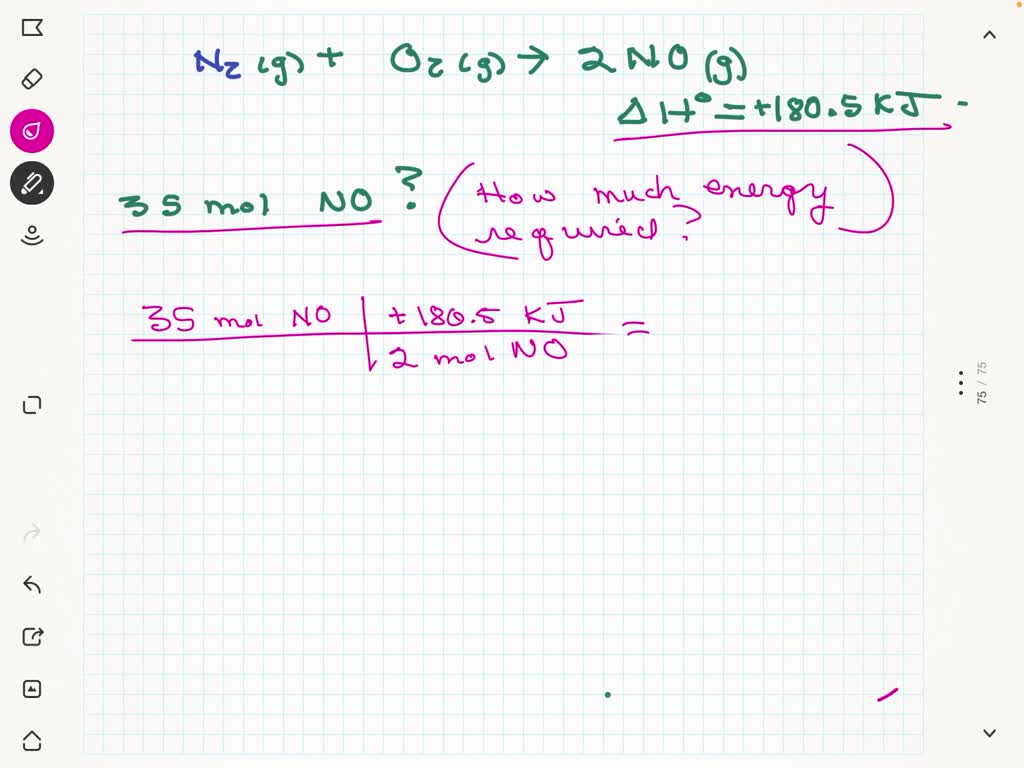 N₂ (g) + O₂ (g) → 2 NO (g)
Δ H° = +180.5 KJ -
35 mol NO ? (How much energy
required?)
35 mol NO | +180.5 KJ =
2 mol NO
75 / 75